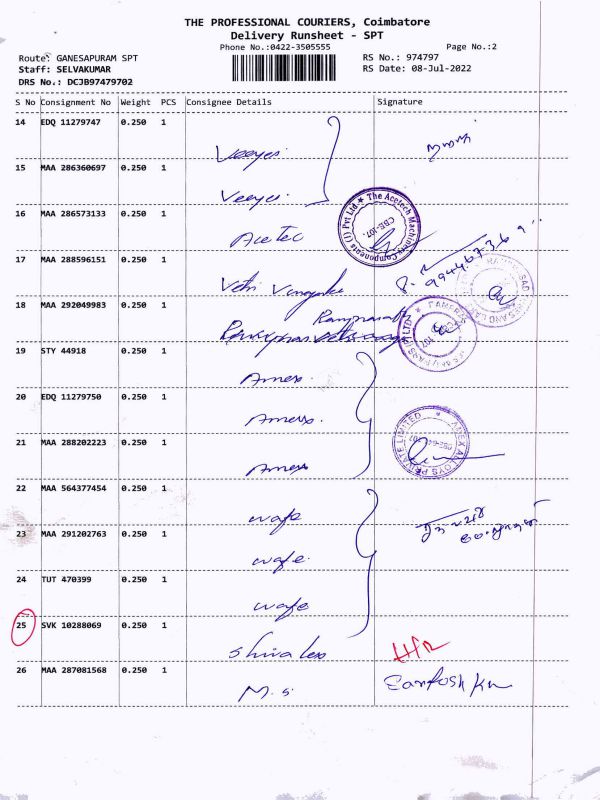 THE PROFESSIONAL COURIERS, Coimbatore
Delivery Runsheet - SPT
Phone No.:0422-3505555
Page No.:2
Route: GANESAPURAM SPT
RS No.: 974797
Staff: SELVAKUMAR
RS Date: 08-Jul-2022
DRS No.: DCJB97479702
S No Consignment No Weight PCS Consignee Details Signature
14 EDQ 11279747 0.250 1
Veeyes
15 MAA 286360697 0.250 1
Veeyes
16 MAA 286573133 0.250 1
Acetec
The Acetech Machinery Components (I) Pvt Ltd ★
CBE-107.
17 MAA 288596151 0.250 1
18 MAA 292049983 0.250 1
Ramprasath
19 STY 44918 0.250 1
Amex
20 EDQ 11279750 0.250 1
Amex
21 MAA 288202223 0.250 1
Amex
AMEX ALLOYS PRIVATE LIMITED ★
22 MAA 564377454 0.250 1
wafe
23 MAA 291202763 0.250 1
wafe
24 TUT 470399 0.250 1
wafe
25 SVK 10288069 0.250 1
26 MAA 287081568 0.250 1
M.S.
Santosh Kr